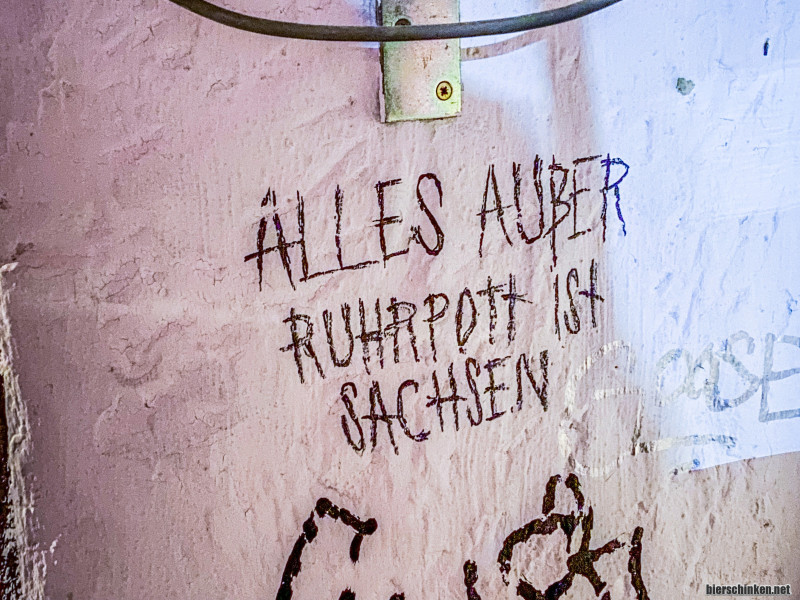 ALLES AUßER
RUHRPOTT IST
SACHSEN
bierschinken.net